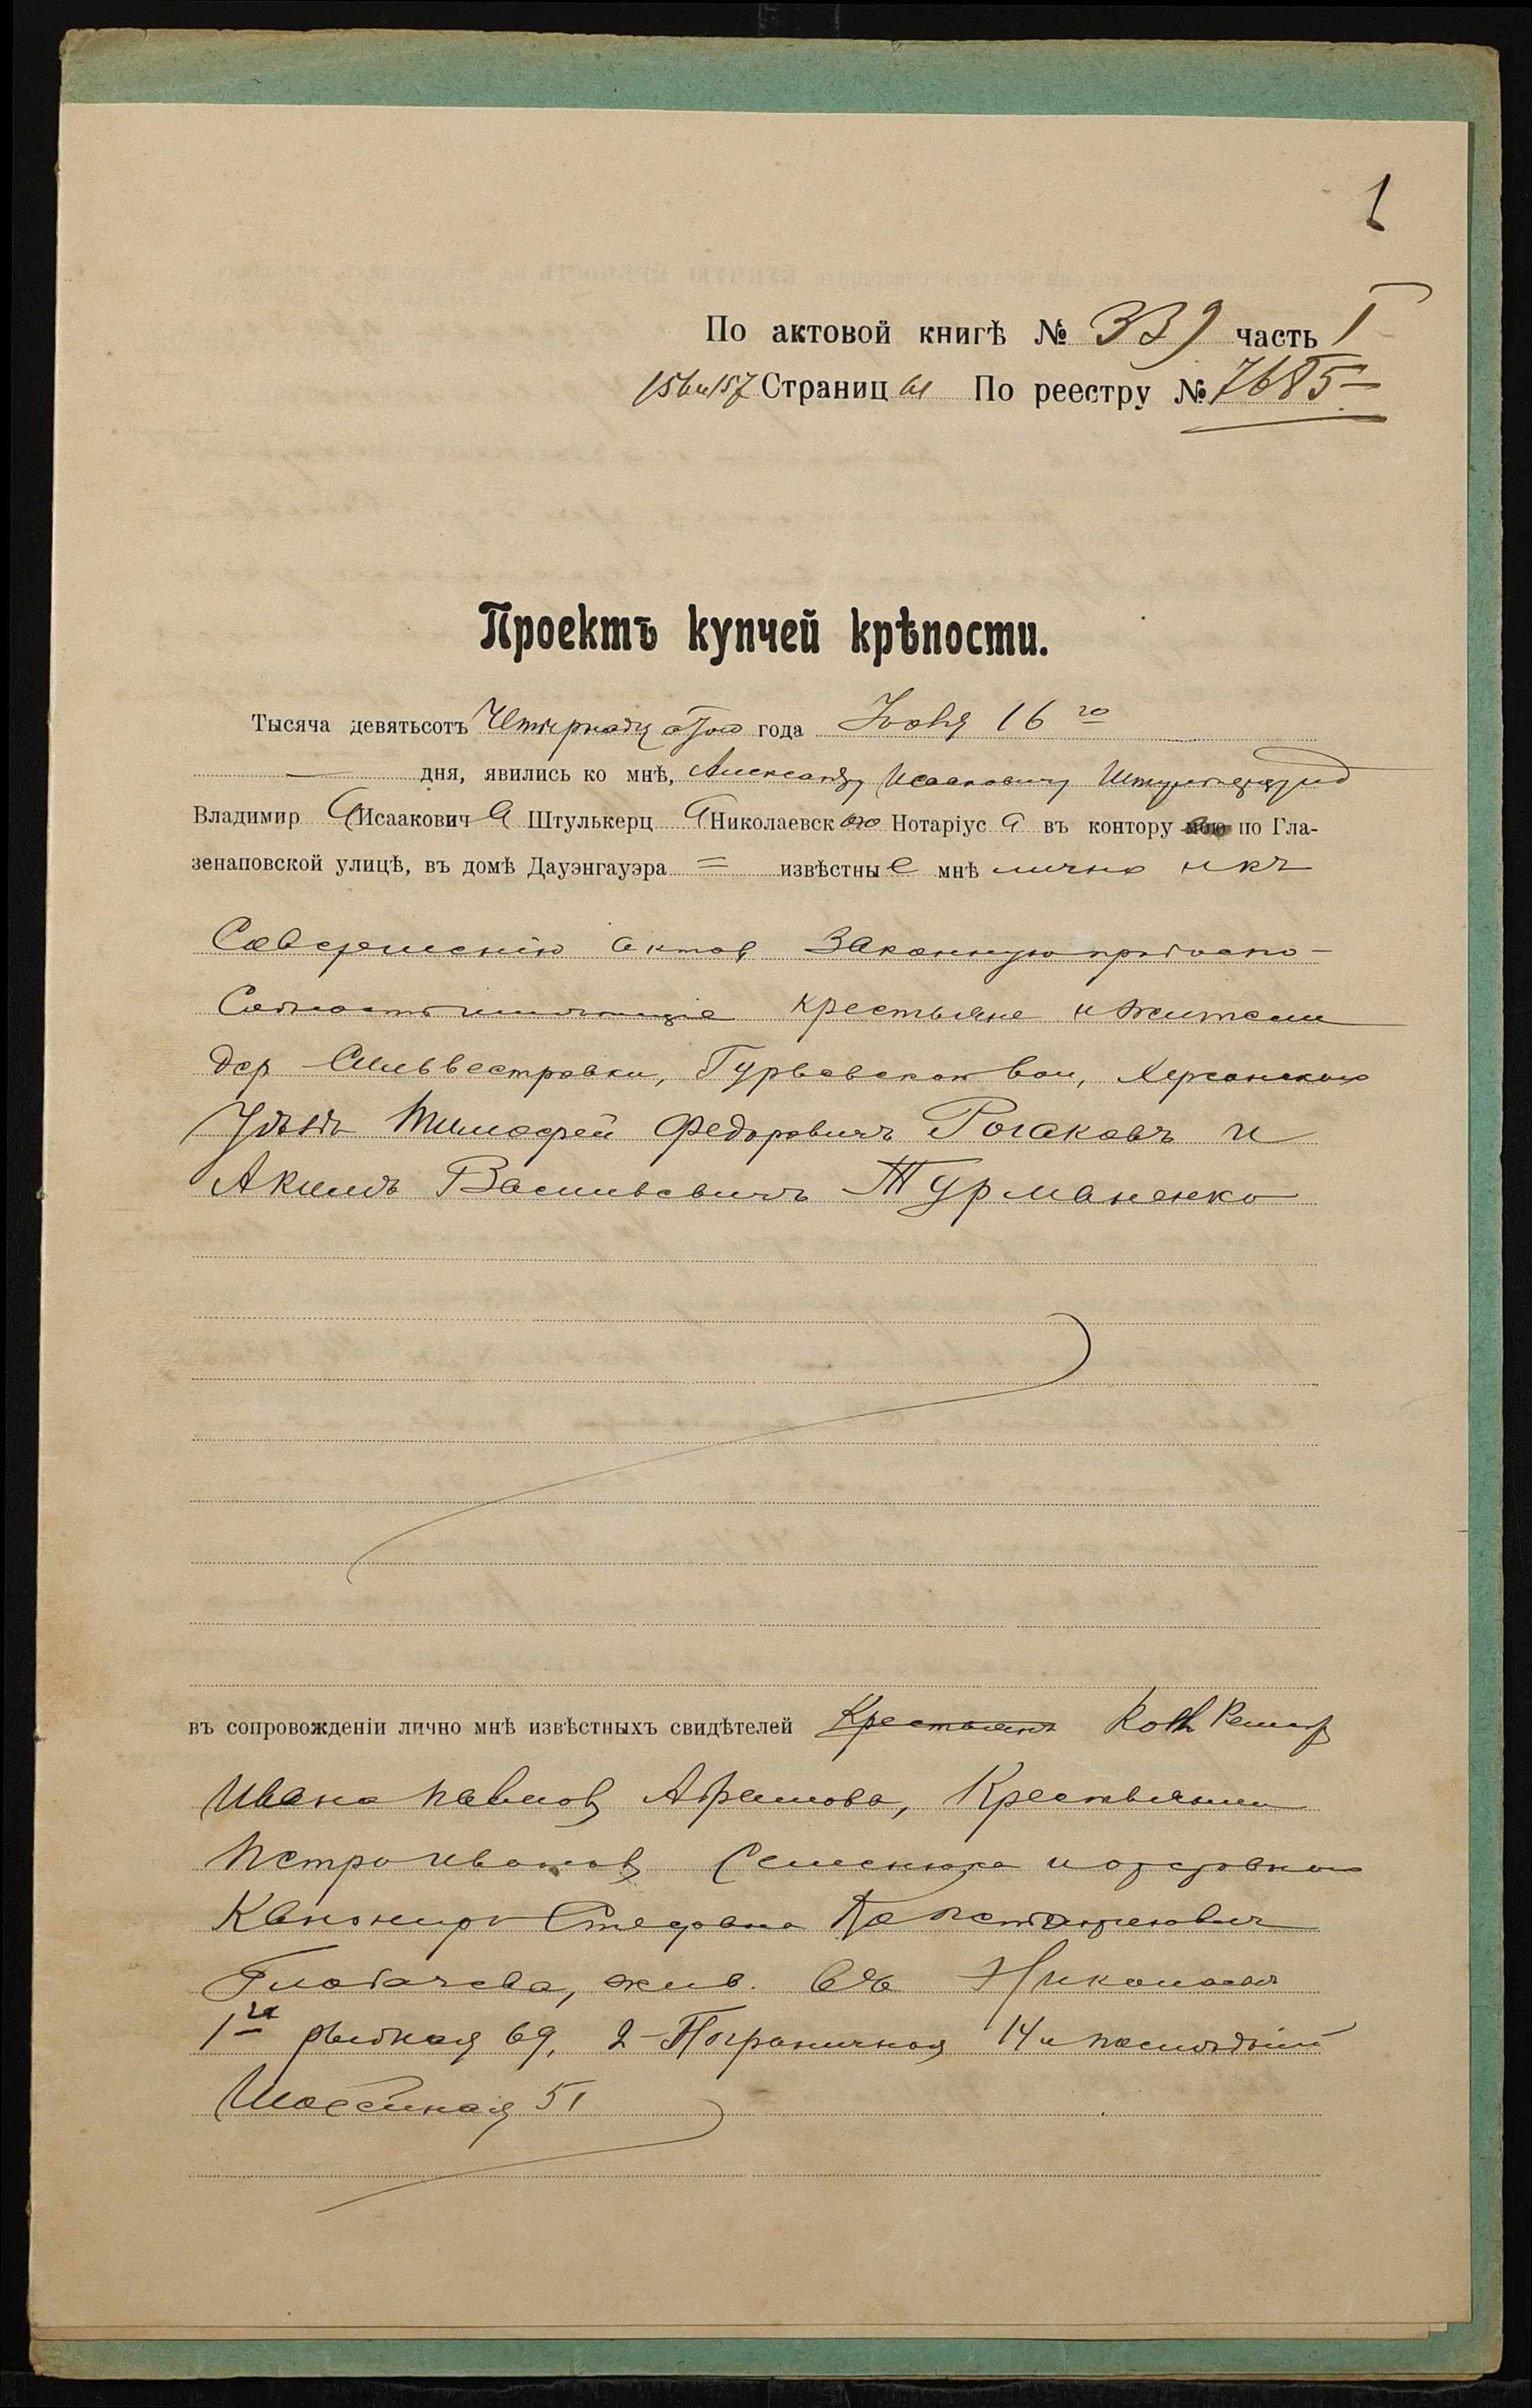 1
По актовой книгѣ № 339 часть I
156 и 157 Страницы По реестру № 7685
Проектъ купчей крѣпости.
Тысяча девятьсотъ Четырнадцатого года Іюня 16 го
дня, явились ко мнѣ, Александру Исааковичу
Владимир Исаакович Штулькерц Николаевск ого Нотаріус а въ контору по Гла-
зенаповской улицѣ, въ домѣ Дауэнгауэра = извѣстны е мнѣ лично и къ
Совершенію актов Законную правоспо-
собность имеющіе крестьяне и жители
дер Сильвестровки, Гурьевской вол, Херсонского
Уѣзда Тимофей Федоровичъ Рогаковъ и
Акимъ Васильевичъ Турманенко
въ сопровожденіи лично мнѣ извѣстныхъ свидѣтелей Крестьянъ
Ивана Павлов Абрамова, Крестьянина
Петра Иванов Семенюка и
Канонира Стефана Константинович
Глобачева, жив. въ Николаевѣ
1я рыбная 69, 2-Пограничная 14 и послѣдній
Шоссейная 51